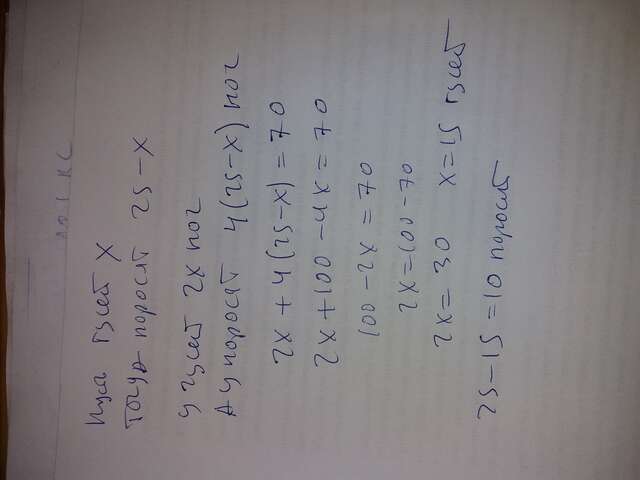 Пусть гусей X
Тогда поросят 25-X
У гусей 2X ног
А у поросят 4(25-X) ног
2X + 4(25-X) = 70
2X + 100 - 4X = 70
100 - 2X = 70
2X = 100 - 70
2X = 30 X = 15 гусей
25 - 15 = 10 поросят